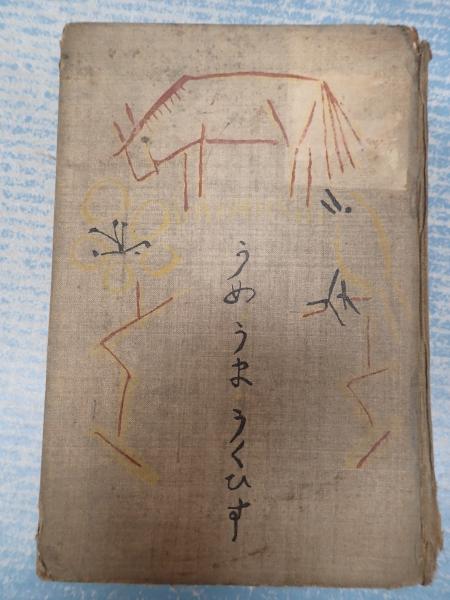 うめ うま うくひす